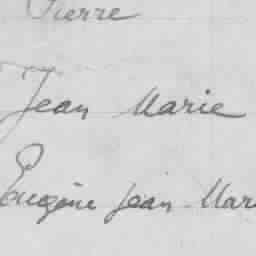 Pierre
Jean Marie
Eugène Jean Mar